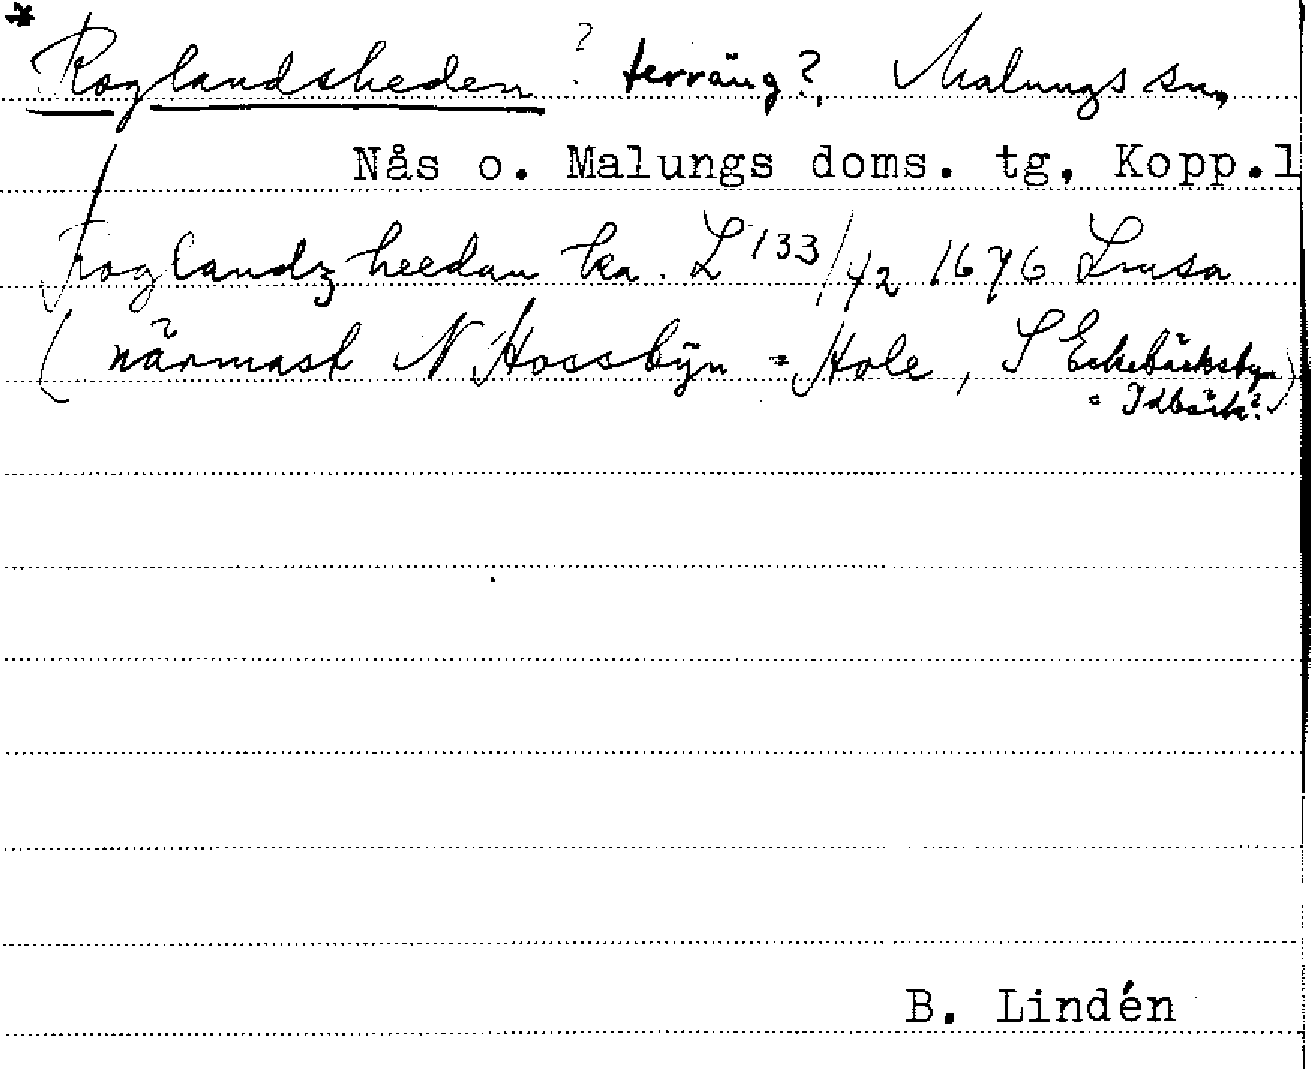 * Roglandsheden ? terräng?, Malungs sn,
Nås o. Malungs doms. tg, Kopp.l
Roglandz heedan ka. L 133/42 1676
(närmast N Hossbÿn = Hole, S Eckebäcksbyn)
= Idbäck?
B. Lindén